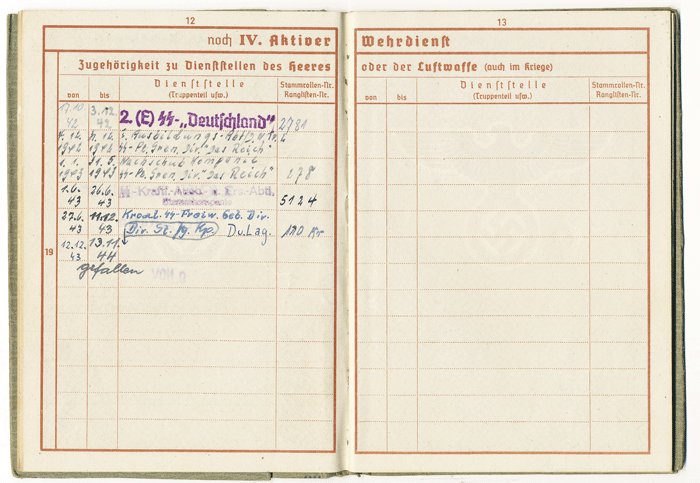 12
noch IV. Aktiver
Zugehörigkeit zu Dienststellen des Heeres
von
bis
Dienststelle
(Truppenteil usw.)
Stammrollen-Nr.
Ranglisten-Nr.
17.10. 42 3.12. 42 2.(E) SS-„Deutschland" 2781
4.12. 1942 Ausbildungs-
SS-Pz. Gren. Div. "Das Reich"
1.1. 1943 31.5. 1943 Nachschub Kompanie
SS-Pz. Gren. Div. "Das Reich" 278
1.6. 43 26.6. 43 SS-Kraftf.-Ausb. u. Ers.-Abt.
Stammkompanie 5124
27.6. 43 11.12. 43 Kroat. SS-Freiw. Geb. Div.
Div. St. Kp. 170 Kr
12.12. 43 13.11. 44
gefallen
19
13
Wehrdienst
oder der Luftwaffe (auch im Kriege)
von
bis
Dienststelle
(Truppenteil usw.)
Stammrollen-Nr.
Ranglisten-Nr.